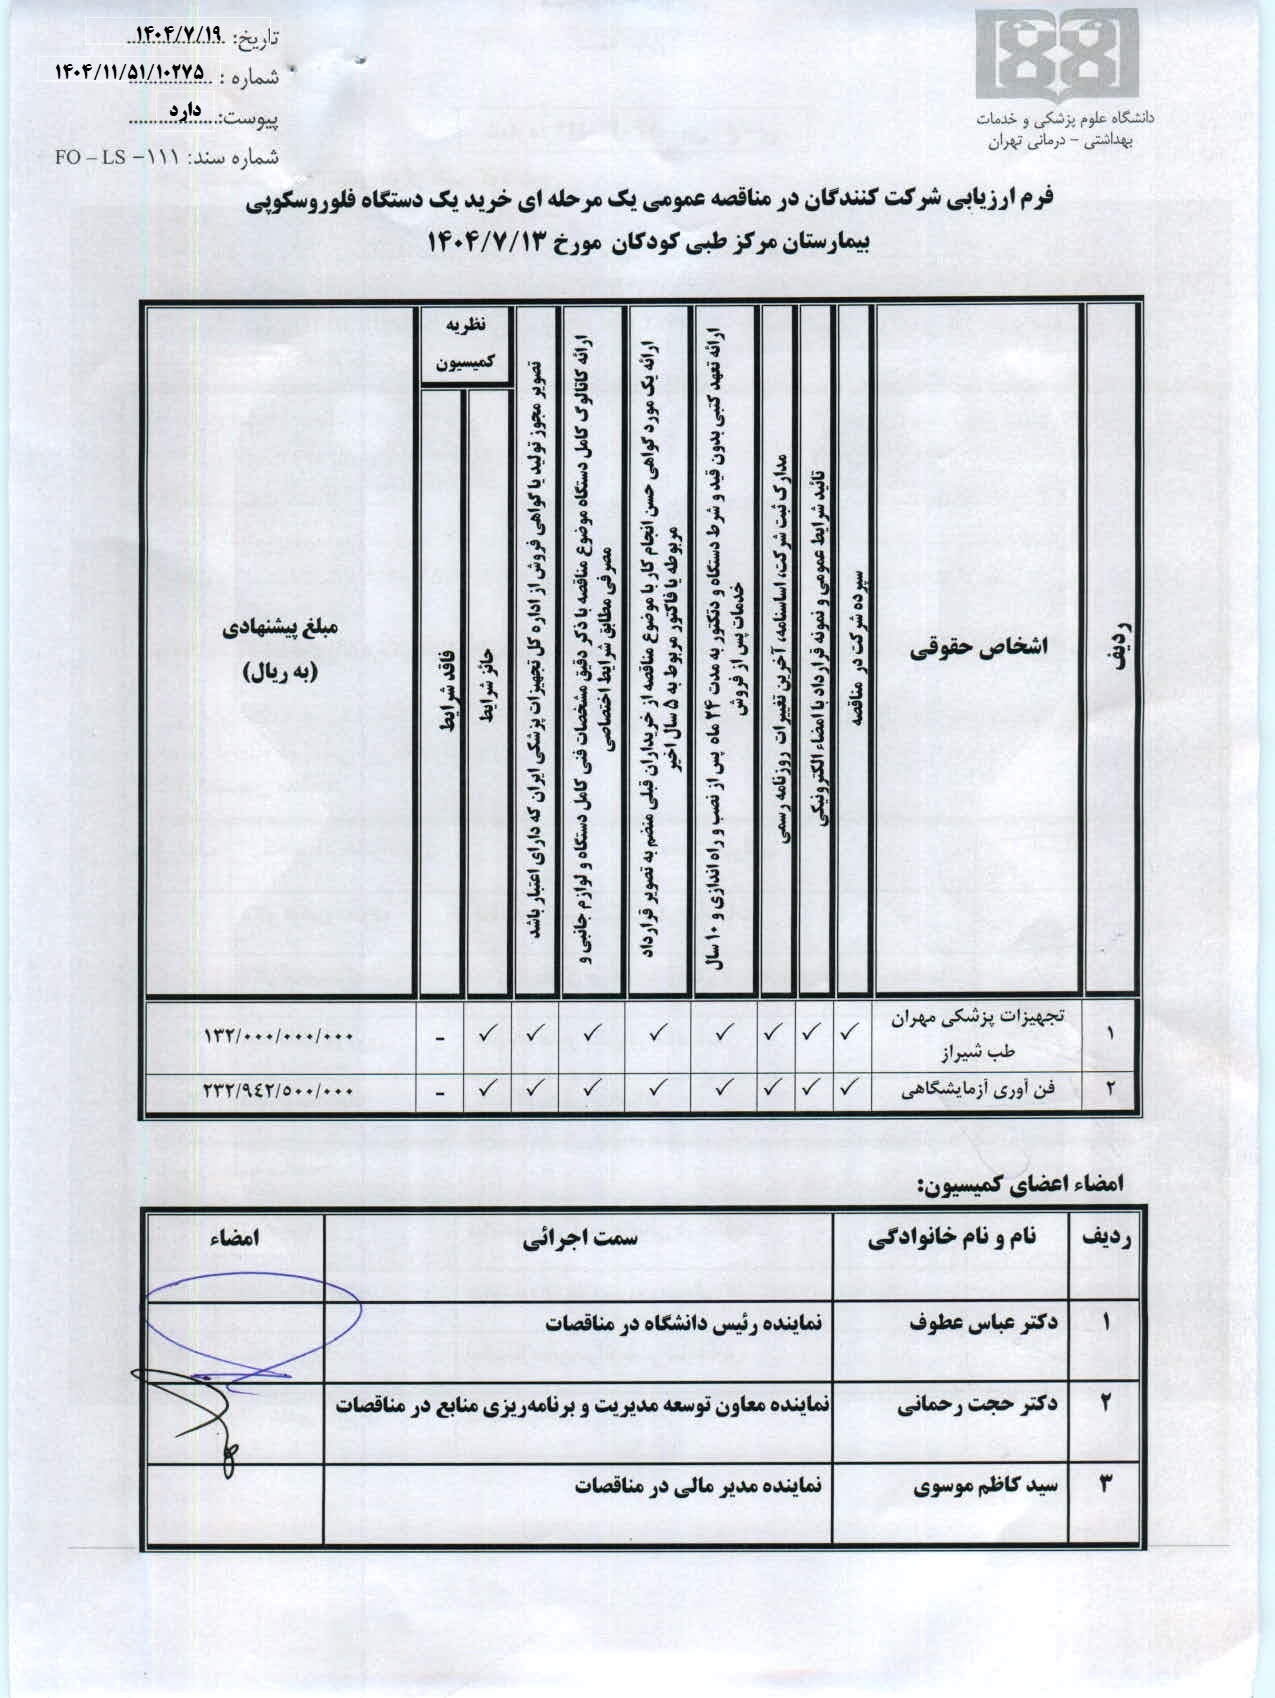 تاریخ: ۱۴۰۴/۷/۱۹
شماره : ۱۴۰۴/۱۱/۵۱/۱۰۲۷۵
پیوست: دارد
شماره سند: ۱۱۱– FO – LS
دانشگاه علوم پزشکی و خدمات
بهداشتی - درمانی تهران
فرم ارزیابی شرکت کنندگان در مناقصه عمومی یک مرحله ای خرید یک دستگاه فلوروسکوپی
بیمارستان مرکز طبی کودکان مورخ ۱۴۰۴/۷/۱۳
ردیف
اشخاص حقوقی
سپرده شرکت در مناقصه
تائید شرایط عمومی و نمونه قرارداد با امضاء الکترونیکی
مدارک ثبت شرکت، اساسنامه، آخرین تغییرات روزنامه رسمی
ارائه تعهد کتبی بدون قید و شرط دستگاه و دتکتور به مدت ۲۴ ماه پس از نصب و راه اندازی و ۱۰ سال
خدمات پس از فروش
ارائه یک مورد گواهی حسن انجام کار با موضوع مناقصه از خریداران قبلی منضم به تصویر قرارداد
مربوطه یا فاکتور مربوط به ۵ سال اخیر
ارائه کاتالوگ کامل دستگاه موضوع مناقصه با ذکر دقیق مشخصات فنی کامل دستگاه و لوازم جانبی و
مصرفی مطابق شرایط اختصاصی
تصویر مجوز تولید یا گواهی فروش از اداره کل تجهیزات پزشکی ایران که دارای اعتبار باشد
نظریه
کمیسیون
حائز شرایط
فاقد شرایط
مبلغ پیشنهادی
(به ریال)
۱ تجهیزات پزشکی مهران ✓ ✓ ✓ ✓ ✓ ✓ ✓ ✓ - ۱۳۲/۰۰۰/۰۰۰/۰۰۰
طب شیراز
۲ فن آوری آزمایشگاهی ✓ ✓ ✓ ✓ ✓ ✓ ✓ ✓ - ۲۳۲/۹٤۲/۵۰۰/۰۰۰
امضاء اعضای کمیسیون:
ردیف نام و نام خانوادگی سمت اجرائی امضاء
۱ دکتر عباس عطوف نماینده رئیس دانشگاه در مناقصات
۲ دکتر حجت رحمانی نماینده معاون توسعه مدیریت و برنامه‌ریزی منابع در مناقصات
۳ سید کاظم موسوی نماینده مدیر مالی در مناقصات